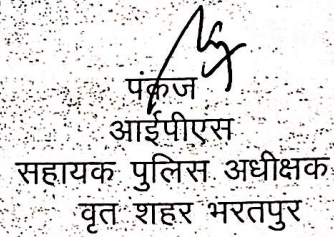 पंकज
आईपीएस
सहायक पुलिस अधीक्षक
वृत शहर भरतपुर